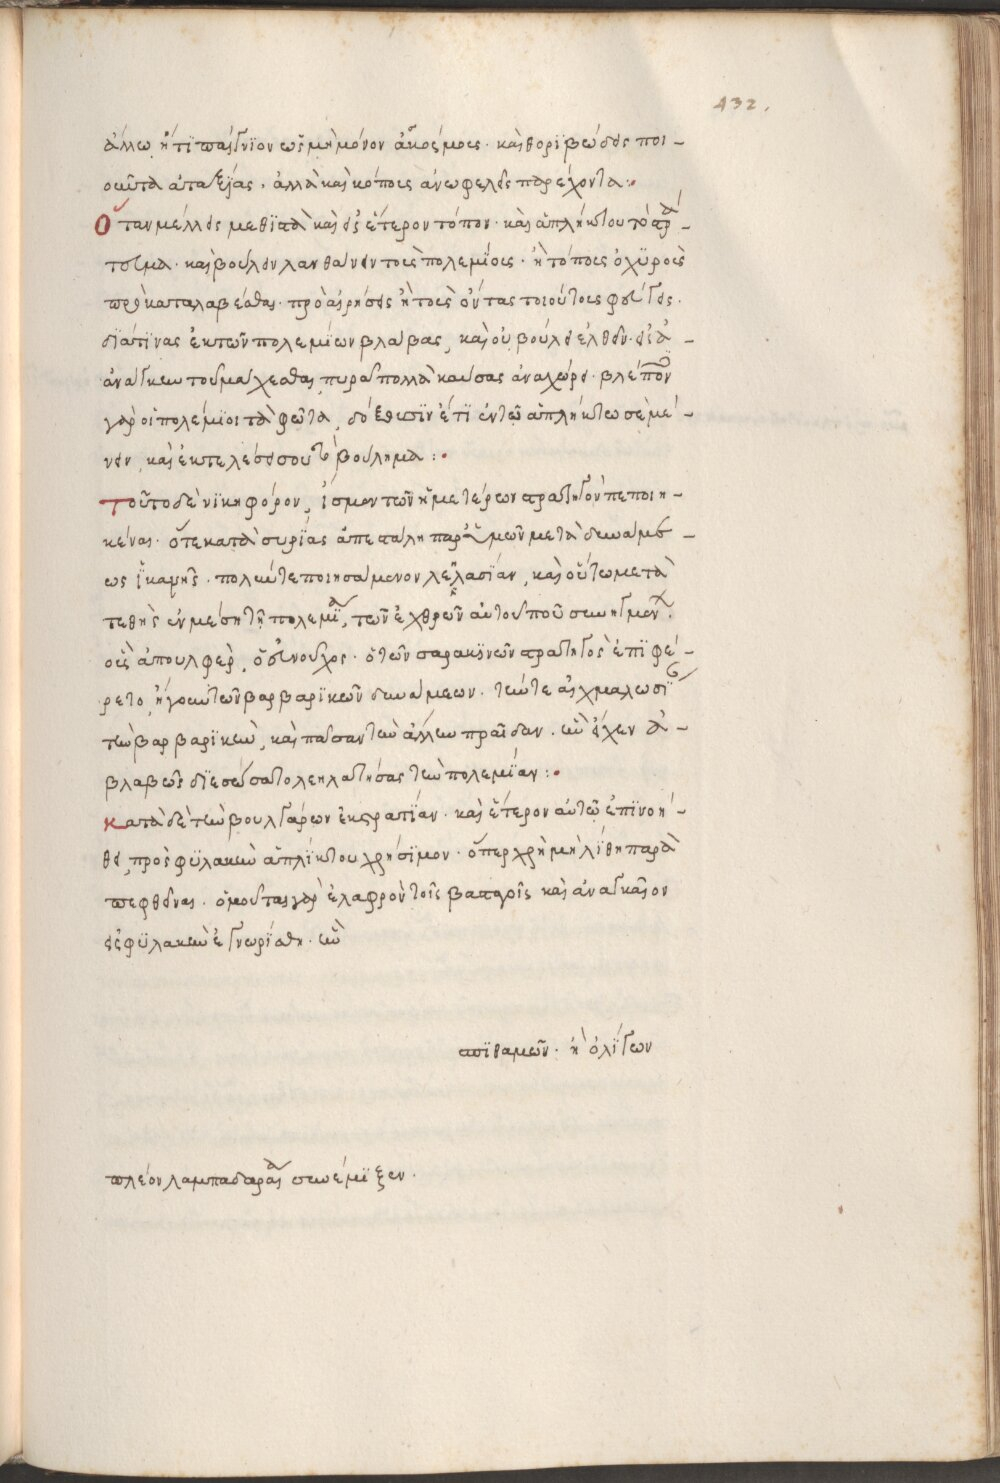 432.
ἄλλω ἢ τϊ παίγνϊον ὡς μὴ μόνον ἀκοσμίοις· καὶ θορϊβώδεις ποι-
οῦντα ἀταξίας· ἀλλὰ καὶ κόποις ἀνωφελεῖς παρέχοντα:·
Ὅταν μέλλεις μεθϊστὰ καὶ εἰς ἕτερον τόπον· καὶ ἀπλήκτου τὸ στρά-
τευμα· καὶ βούλει λανθάνειν τοῖς πολεμίοις· ἢ τόποις ὀχϋροῖς
προκαταλαβέσθαι· προαιρήσεις ἢ τοῖς ὄντας τοιούτοις φεύγεις·
διά τϊνας ἐκ τῶν πολεμίων βλάβας, καὶ οὐ βούλει ἐλθεῖν εἰς ἀ-
νάγκην τοῦ μάχεσθαι, πυρὰ πολλὰ καύσας ἀναχώρει· βλέποντες
γὰρ οἱ πολέμιοι τὰ φῶτα, δόξωσϊν ἔτϊ ἐν τῷ ἀπλήκτω σὲ μέ-
νειν, καὶ ἐκτελέσεις σου τὸ βούλημα:·
Τοῦτο δὲ νϊκηφόρον, ἴσμεν τῶν ἡμετέρων στρατηγὸν πεποιη-
κέναι· ὅτε κατὰ συρίας ἀπεστάλη παρ' ἡμῶν μετὰ δυνάμε-
ως ἱκανῆς· πολλήν τε ποιησάμενον λεηλασίαν, καὶ οὕτω μετα
τεθὴς ἐν μέση τῆ πολεμία, τῶν ἐχθρῶν αὐτοῦ που συνηγμένων·
οἷς ἀπουλφὲρ, ὁ εὐνοῦχος· ὁ τῶν σαρακϊνῶν στρατηγὸς ἐπϊφέ-
ρετο, ἤγουν τῶν βαρβαρϊκῶν δυνάμεων· τήν τε αἰχμαλωσϊαν
τὴν βαρβαρϊκὴν, καὶ πᾶσαν τὴν ἄλλην πραῖδαν· ἣν εἶχεν ἀ-
βλαβῶς δϊεσώσατο λεηλατήσας τὴν πολεμίαν:·
Κατὰ δὲ τὴν βουλγάρων ἐκστρατίαν· καὶ ἕτερον αὐτῶ ἐπϊνοή-
θει, πρὸς φϋλακὴν ἀπλίκτου χρήσϊμον· ὅπερ χρὴ μὴ λίθη παρα
πεφθεῖναι· ὁμοῦ τας γὰρ ἐλαφρὸν τοῖς βασταγοῖς καὶ ἀναγκαῖον
εἰς φϋλακὴν ἐγνωρίσθη· ἣν
σπϊθαμῶν· ἢ ὀλίγων
πλέον λαμπαδαρέας συνέμϊξεν·